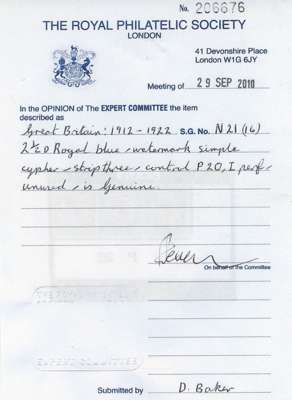 No. 206676
THE ROYAL PHILATELIC SOCIETY
LONDON
41 Devonshire Place
London W1G 6JY
Meeting of 29 SEP 2010
In the OPINION of The EXPERT COMMITTEE the item
described as
Great Britain: 1912-1922 S.G. No. N21(16)
2½D Royal blue, watermark simple
cypher, strip three, control P20, I perf,
unused, is Genuine.
On behalf of the Committee
EXPERT COMMITTEE
Submitted by D. Baker